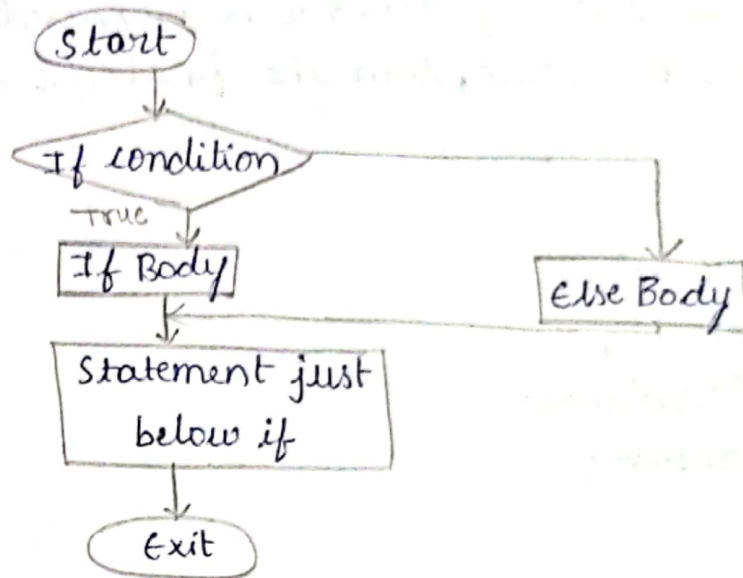 Start
If condition
True
If Body
Else Body
Statement just
below if
Exit